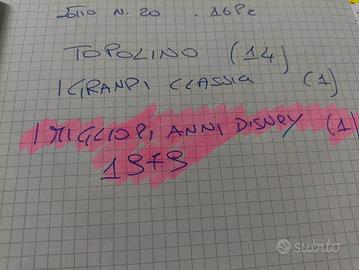 LOTTO N. 20 . 16 PZ
TOPOLINO (14)
I GRANDI CLASSICI (1)
I MIGLIORI ANNI DISNEY (1)
1979
subito